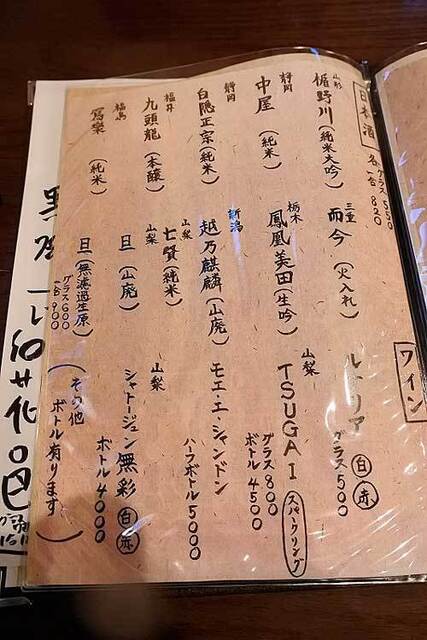 日本酒 各 グラス 550
一合 820
山形
楯野川(純米大吟)
静岡
中屋(純米)
静岡
白隠正宗(純米)
福井
九頭龍(本醸)
福島
冩樂(純米)
三重
而今(火入れ)
栃木
鳳凰美田(生吟)
新潟
越乃麒麟(山廃)
山梨
七賢(純米)
山梨
旦(山廃)
旦(無濾過生原)
グラス600
一合 900
ワイン
ルナリア 白 赤
グラス500
山梨
TSUGAI スパークリング
グラス800
ボトル4500
モエ・エ・シャンドン
ハーフボトル5000
山梨
シャトージュン無彩 白 赤
ボトル4000
(その他
ボトル有ります)